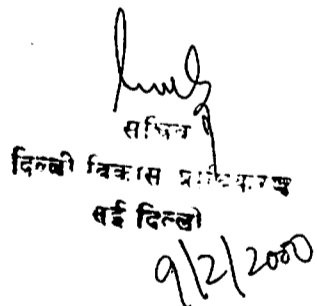 सचिव
दिल्ली विकास प्राधिकरण
नई दिल्ली
9/2/2000